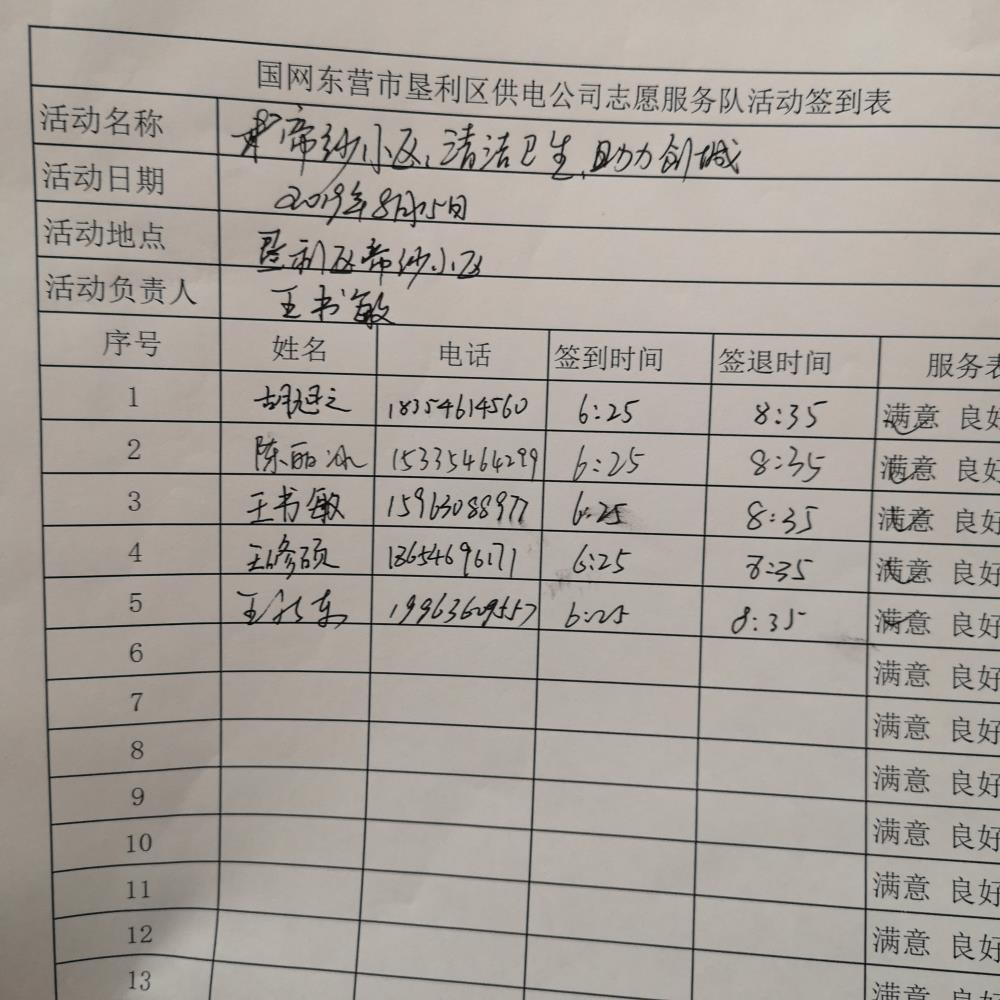 国网东营市垦利区供电公司志愿服务队活动签到表
活动名称 帝纱小区,清洁卫生,助力创城
活动日期 2019年8月15日
活动地点 垦利区帝纱小区
活动负责人 王书敏
序号 姓名 电话 签到时间 签退时间 服务
1 18354614560 6:25 8:35 满意 良好
2 陈丽冰 15335464299 6:25 8:35 满意 良好
3 王书敏 15963088977 6:25 8:35 满意 良好
4 王修硕 18654696171 6:25 8:35 满意 良好
5 19963609557 6:25 8:35 满意 良好
6 满意 良好
7 满意 良好
8 满意 良好
9 满意 良好
10 满意 良好
11 满意 良好
12 满意 良好
13 满意 良好